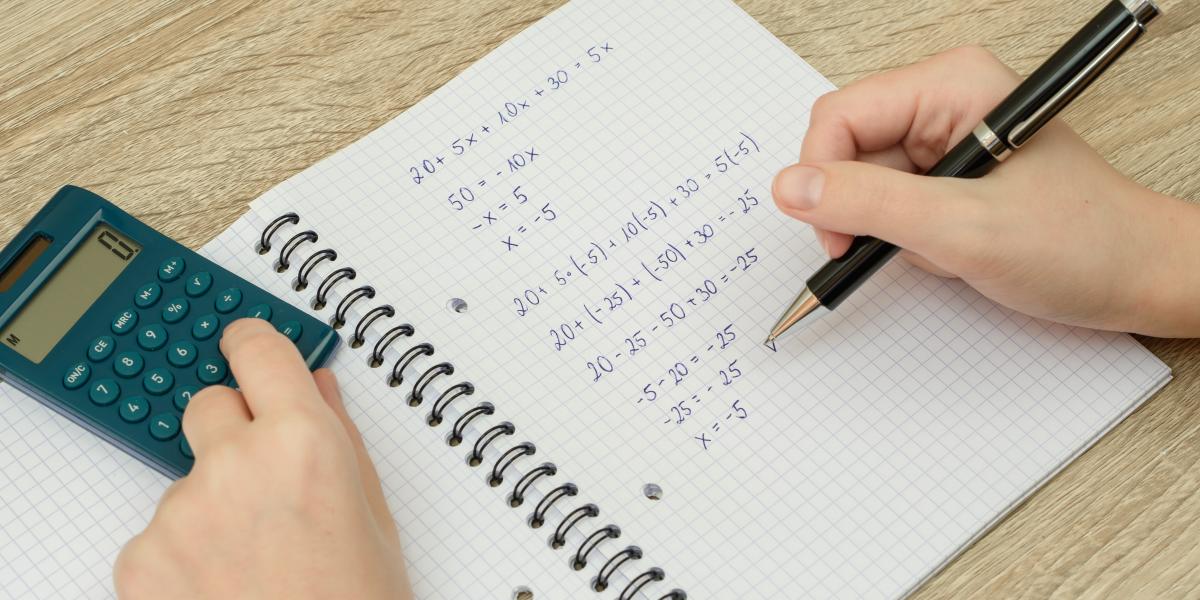 20 + 5x + 10x + 30 = 5x
50 = - 10x
-x = 5
x = -5
20 + 5·(-5) + 10(-5) + 30 = 5(-5)
20 + (-25) + (-50) + 30 = -25
20 - 25 - 50 + 30 = -25
-5 - 20 = -25
-25 = -25
x = -5
0
M
M+
M- √
MRC % ÷
CE 9 ×
ON/C 8 6 -
7 5 3 =
4 2
1